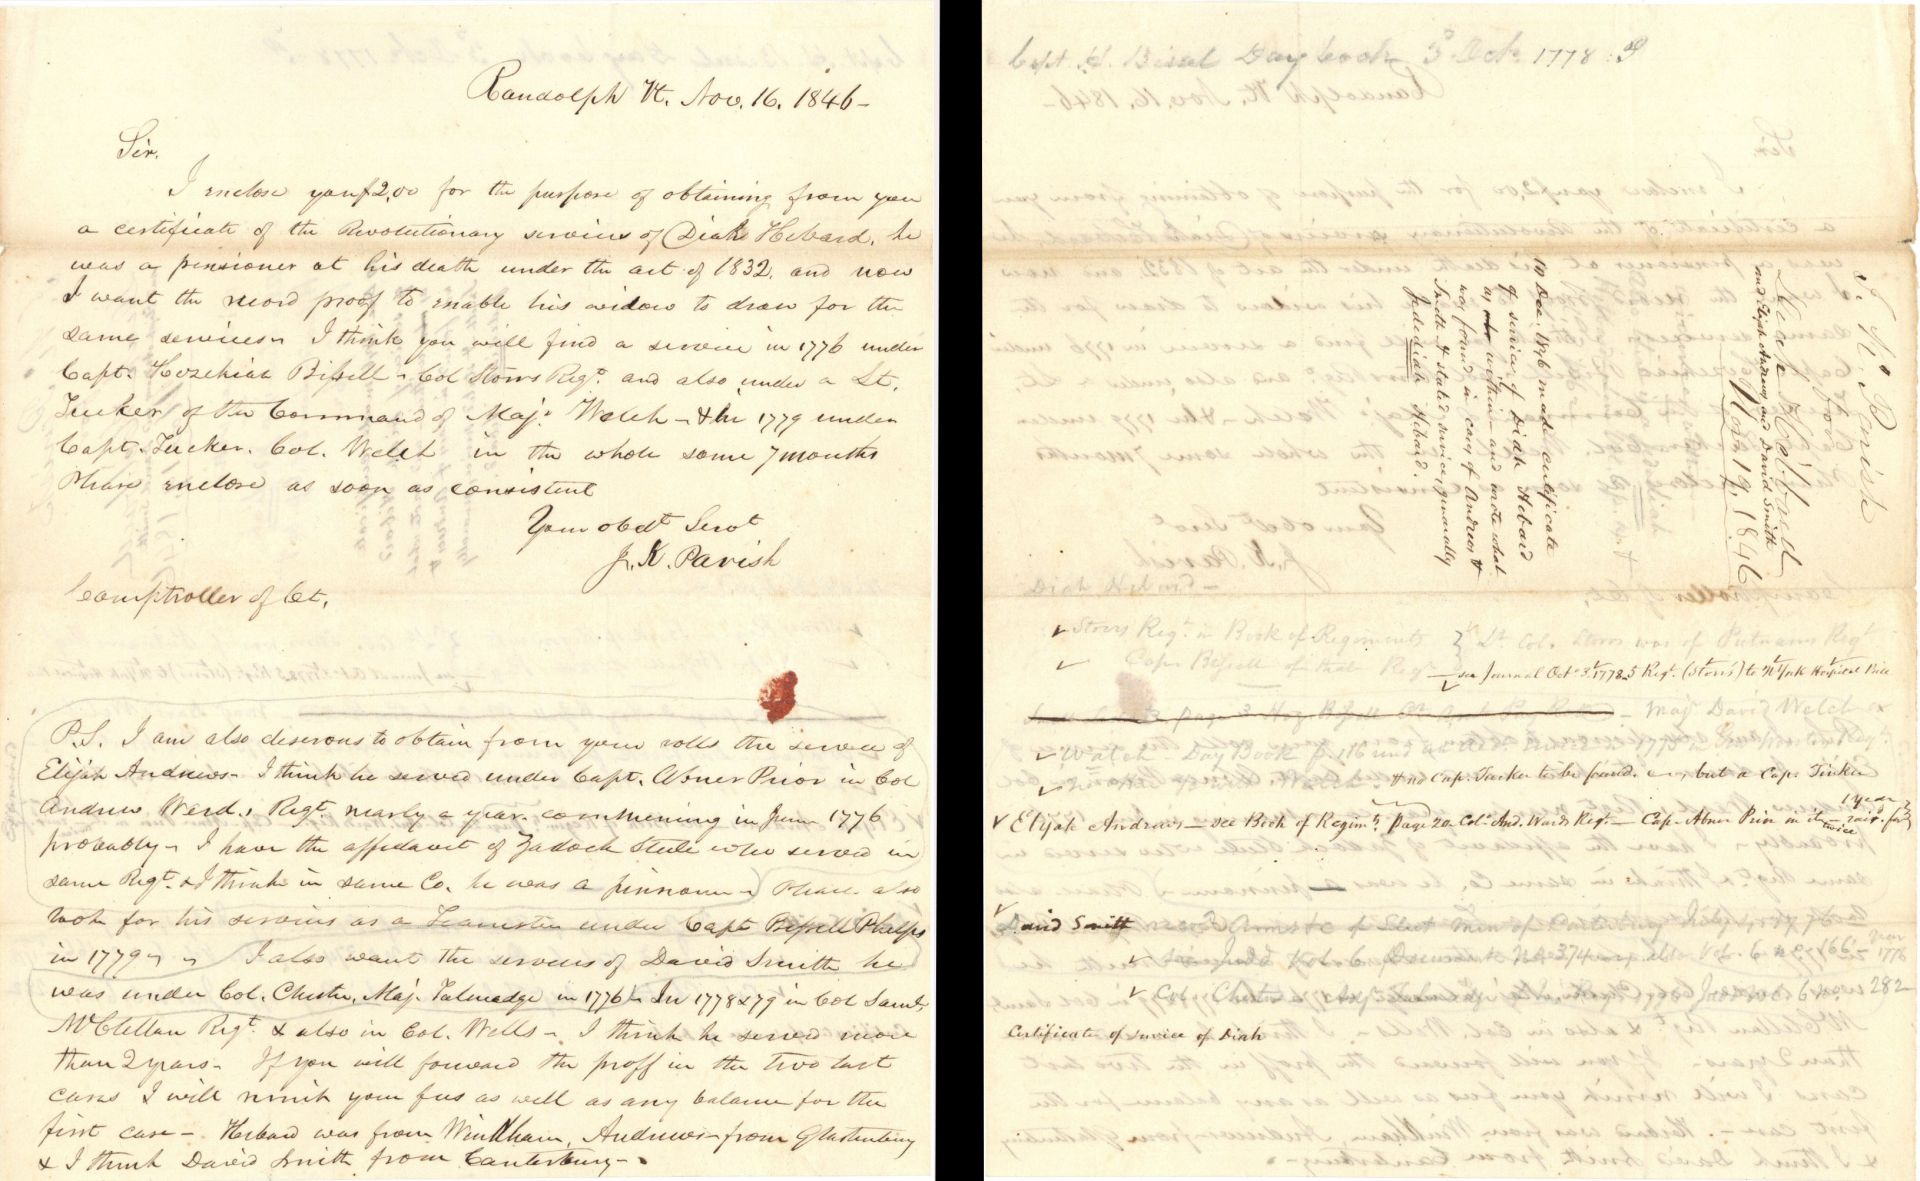 Randolph Vt. Nov. 16. 1846-
Sir.
I enclose you $2,00 for the purpose of obtaining from you
a certificate of the Revolutionary services of Diah Hebard. he
was a pensioner at his death under the act of 1832. and now
I want the record proof to enable his widow to draw for the
same services- I think you will find a service in 1776 under
Capt. Hezekiah Bissell - Col Storrs Regt. and also under a Lt.
Tucker of the Command of Maj. Welch - & in 1779 under
Capt. Tucker. Col. Welch in the whole some 7 months
Please enclose as soon as consistent
Your obedt Servt
J. K. Parish
Comptroller of Ct.
P.S. I am also desirous to obtain from your rolls the service of
Elijah Andrews- I think he served under Capt. Abner Prior in Col
Andrew Ward,s Regt. nearly a year. commencing in June 1776
probably- I have the affidavit of Zadock Steele who served in
same Regt. & I think in same Co. he was a pensioner - Please also
look for his services as a Teamster under Capt Bissell Phelps
in 1779 - - I also want the services of David Smith he
was under Col. Chester, Maj. Talmadge in 1776 - In 1778 & 79 in Col Saml.
McClellan Regt. & also in Col. Wells - I think he served more
than 2 years- If you will forward the proff in the two last
cases I will remit your fees as well as any balance for the
first case - Hebard was from Windham, Andrews - from Glastenbury
& I think David Smith from Canterbury -
Capt. H. Bissel Day book 3d Oct. 1778
J. K. Parish
for
Diah Hebbard
and Elijh Andrews and David Smith
Nov. 19. 1846
10 Dec. 1846 made certificate
of service of Diah Hebard
as within - and wrote what
was found in case of Andrews &
Smith & stated service, generally
Jedediah Hebard.
Diah Hebard -
Storrs Regt. in Book of Regiments } Lt. Col. Storrs was of Putnams Regt
Capt. Bissell of that Regt - see Journal Oct. 3. 1778. 5 Regt. (Storrs) to N York Hospital Bill
Maj David Welch
Day Book
& no Cap. Tucker to be found. - but a Cap. Tinker
Elijah Andrews - see Book of Regimts. page 20 Col. And. Wards Regt - Cap. Abner Prior in it twice
1 year
David Smith
Vol. 6 Document No 374 also Vol. 6 166
year 1776
Col. Chester 282
Certificate of service of Diah